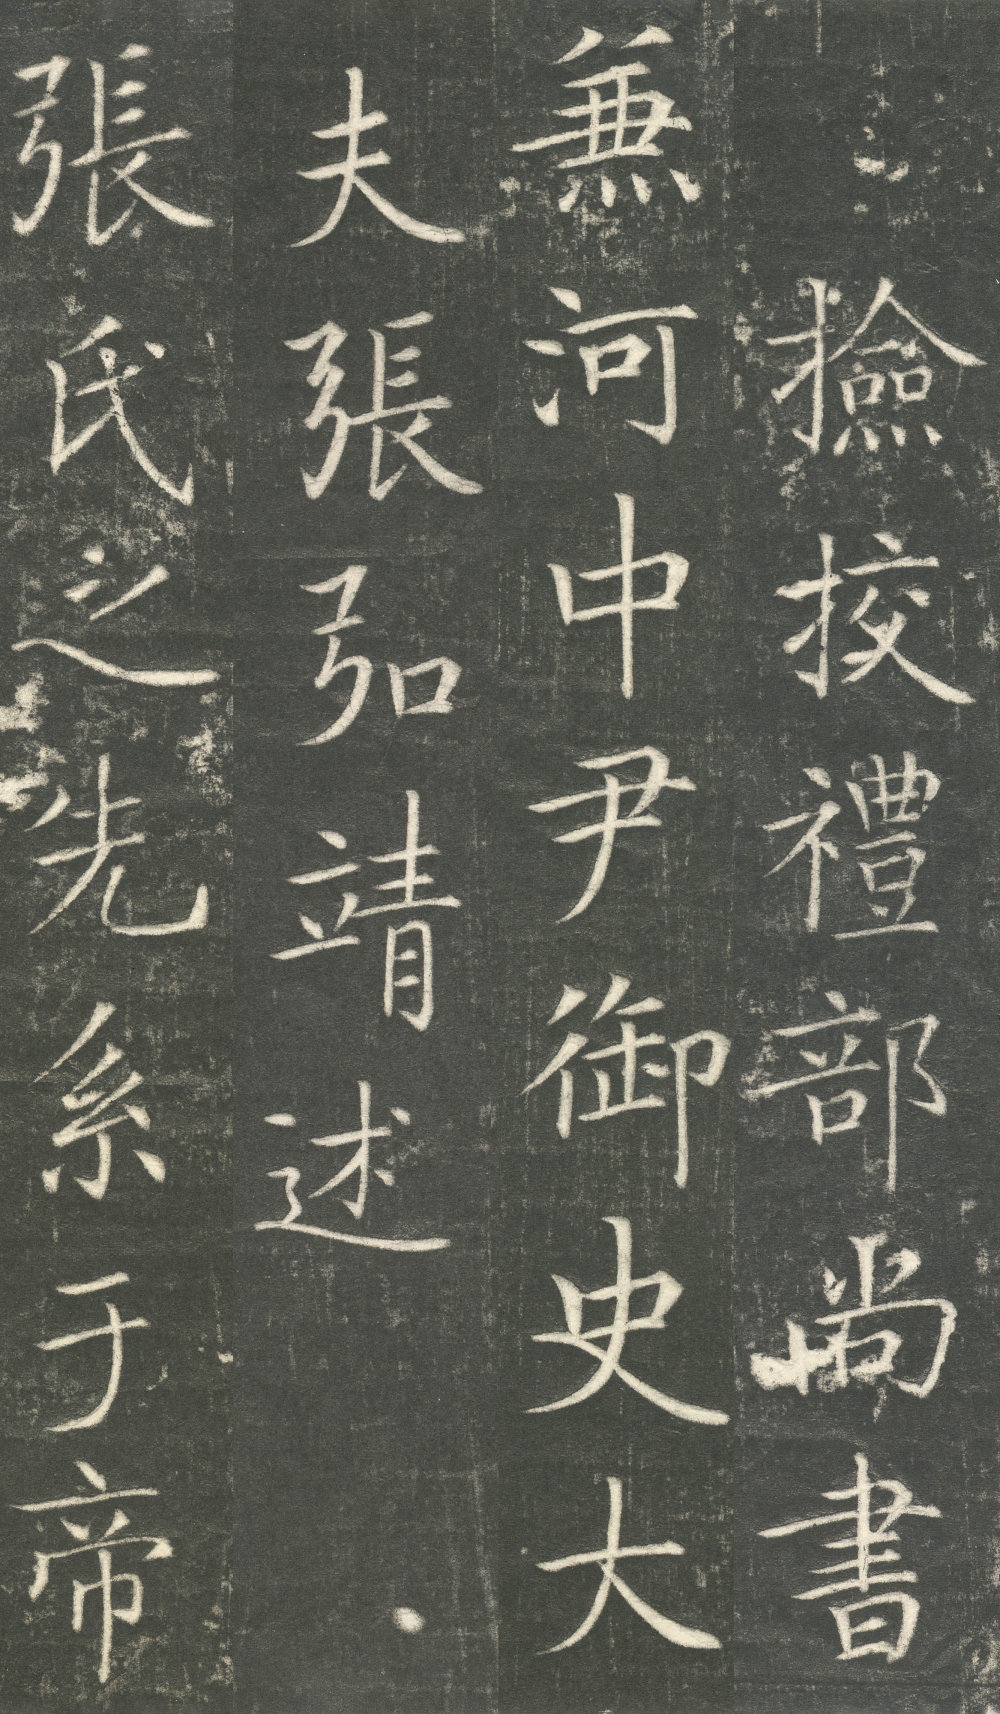 撿挍禮部尚書
蒹河中尹御史大
夫張弘靖述
張氏之先系于帝